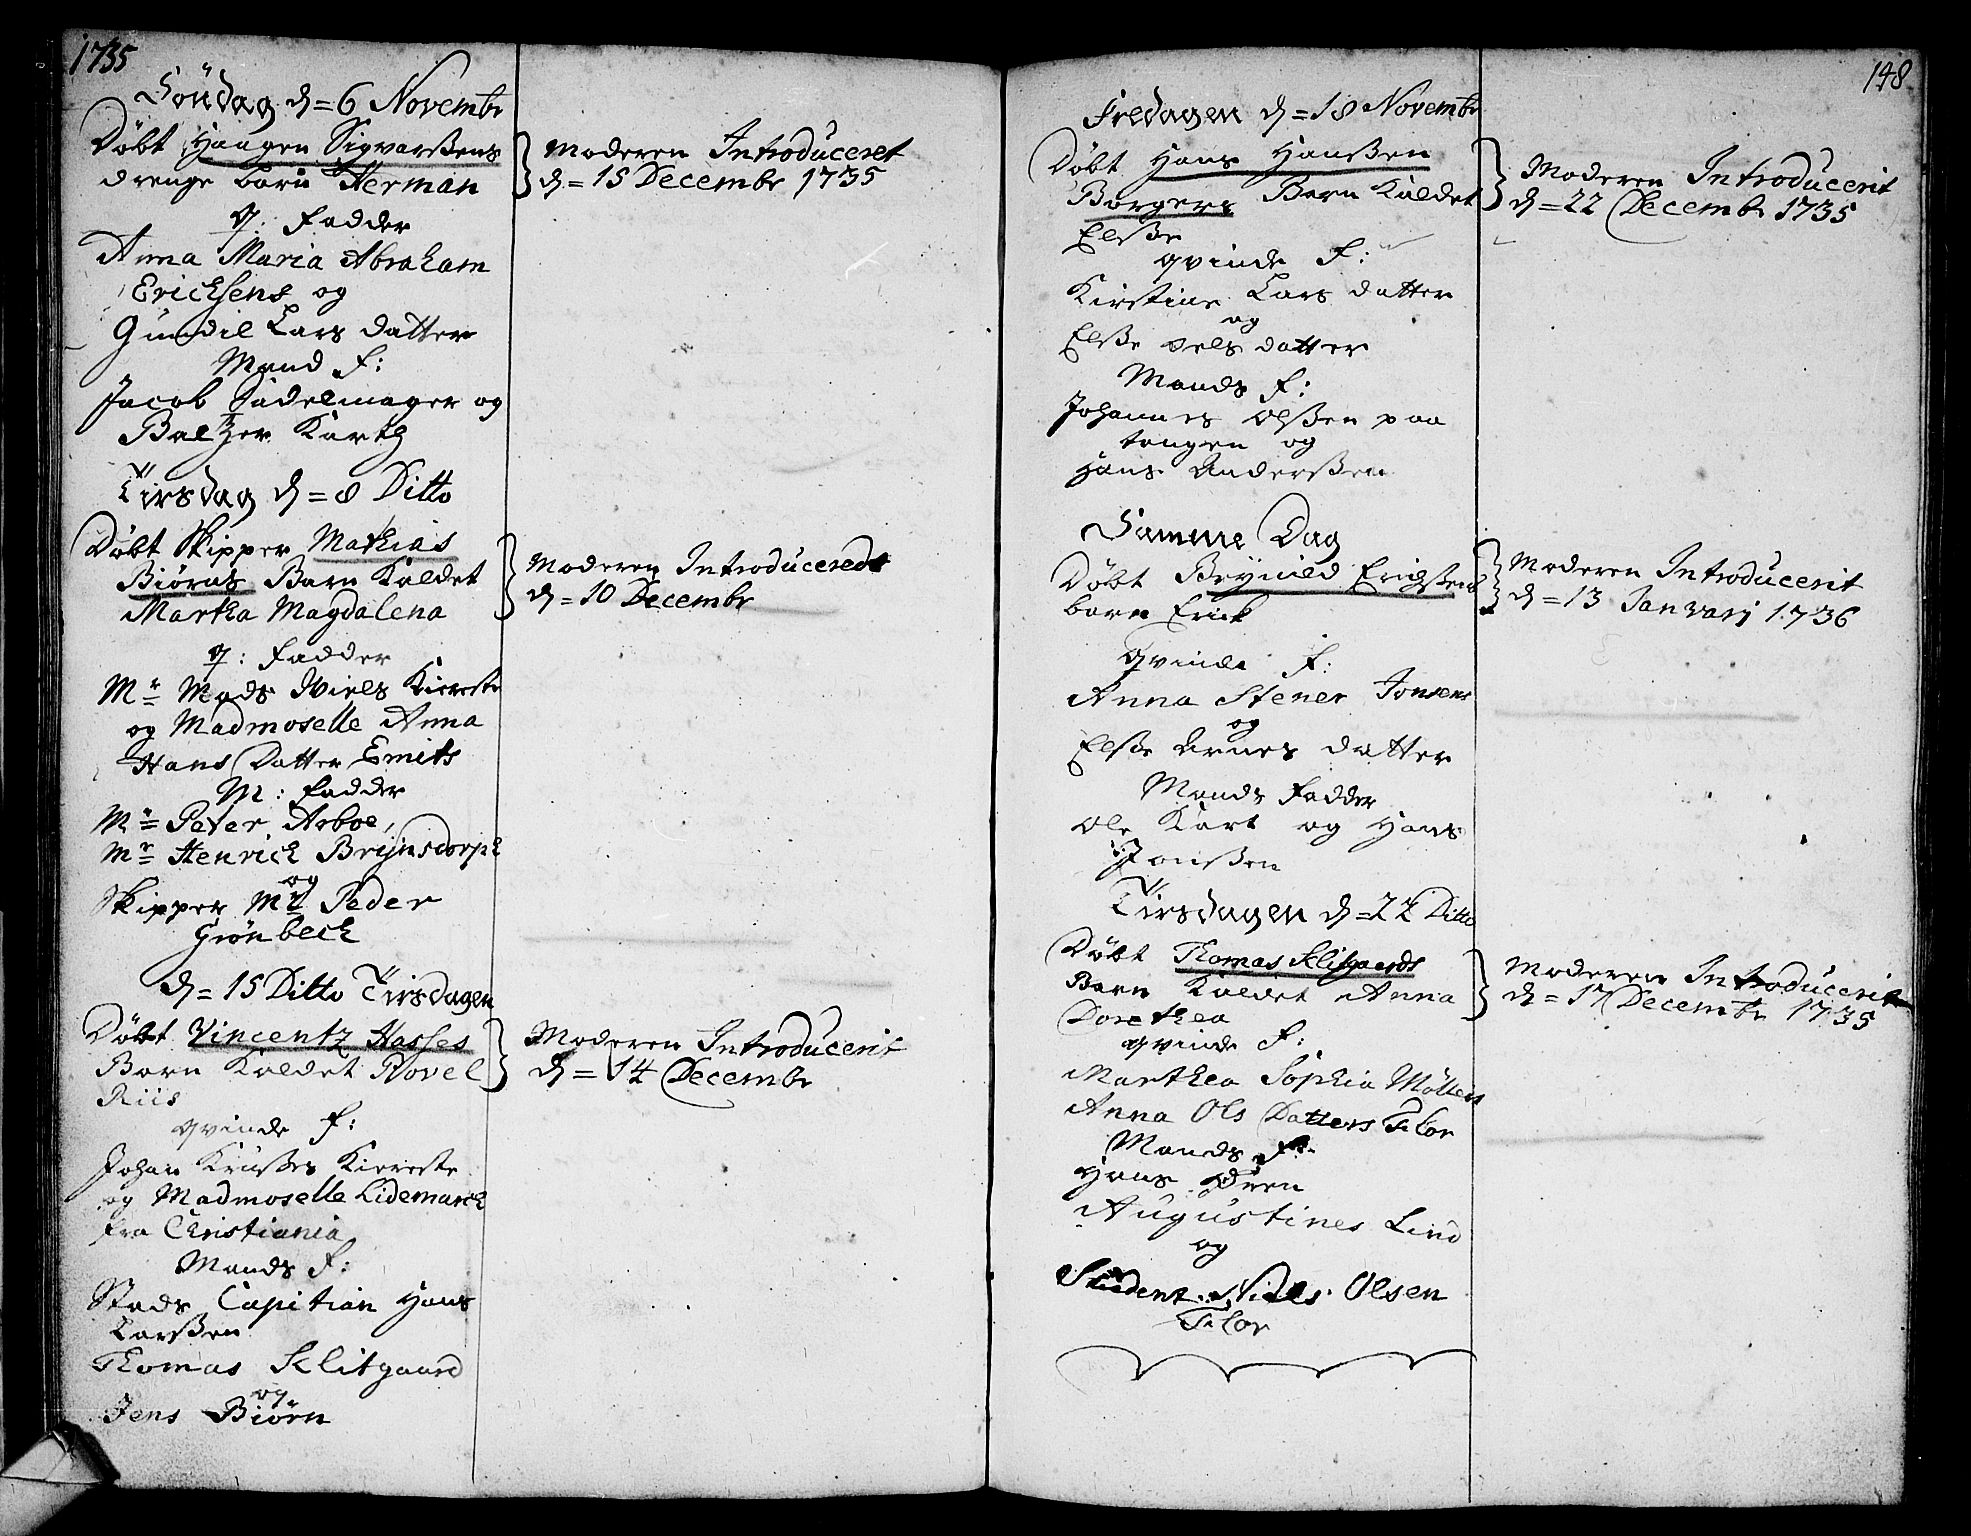 1735
Söndag d= 6 Novembr
Döbt Haagen Sigvarßens
drenge barn Herman
q: Fadder
Anna Maria Abraham
Ericksens og
Gundil Lars datter
Mand f:
Jacob Sadelmager og
Baltzer Kartg
Tirsdag d= 8 Ditto
Döbt Skipper Mathias
Biörns Barn Kaldet
Martha Magdalena
q: Fadder
Mr Mads Wiels Kiereste
og Madmoselle Anna
Hans Datter Smits
M: Fadder
Mr Peter Arboe,
Mr Henrich Brijnsdorph
og
Skipper Mr Peder
Grönbech
d= 15 Ditto Tirsdagen
Döbt Vincentz Hasses
Barn Kaldet Povel
Riis
qvinde f:
Johan Krußes Kiereste
og Madmoselle Lidemarck
fra Christiania
Mands f:
Stads Capitain Hans
Larßen
Thomas Klitgaard
og
Jens Biörn
Moderen Introduceret
d= 15 Decembr 1735
Moderen Introducered
d= 10 Decembr
Moderen Introducerit
d= 14 Decembr
148
Fredagen d= 18 Novembr
Döbt Hans Hanßen
Borgers Barn Kaldet
Elße
qvinde f:
Kirstine Lars datter
og
Elße Oels datter
Mands f:
Johannes Olßen paa
tangen og
Hans Anderßen
Samme Dag
Döbt Brynild Erichßens
barn Erick
qvinde f:
Anna Stener Jonsens
og
Elße Arnes datter
Mands Fadder
Ole Kart og Hans
Jonßen
Tirsdagen d= 22 Ditto
Döbt Thomas Klitgaards
Barn Kaldet Anna
Dorethea
qvinde f:
Marthea Sophia Möllers
Anna Ols Datters Flor
Mands f:
Hans
Augustines Lind
og
Student Niels Olsen
Flor
Moderen Introducerit
d= 22 Decembr 1735
Moderen Introducerit
d= 13 Janvarj 1736
Moderen Introducerit
d= 17 Decembr 1735